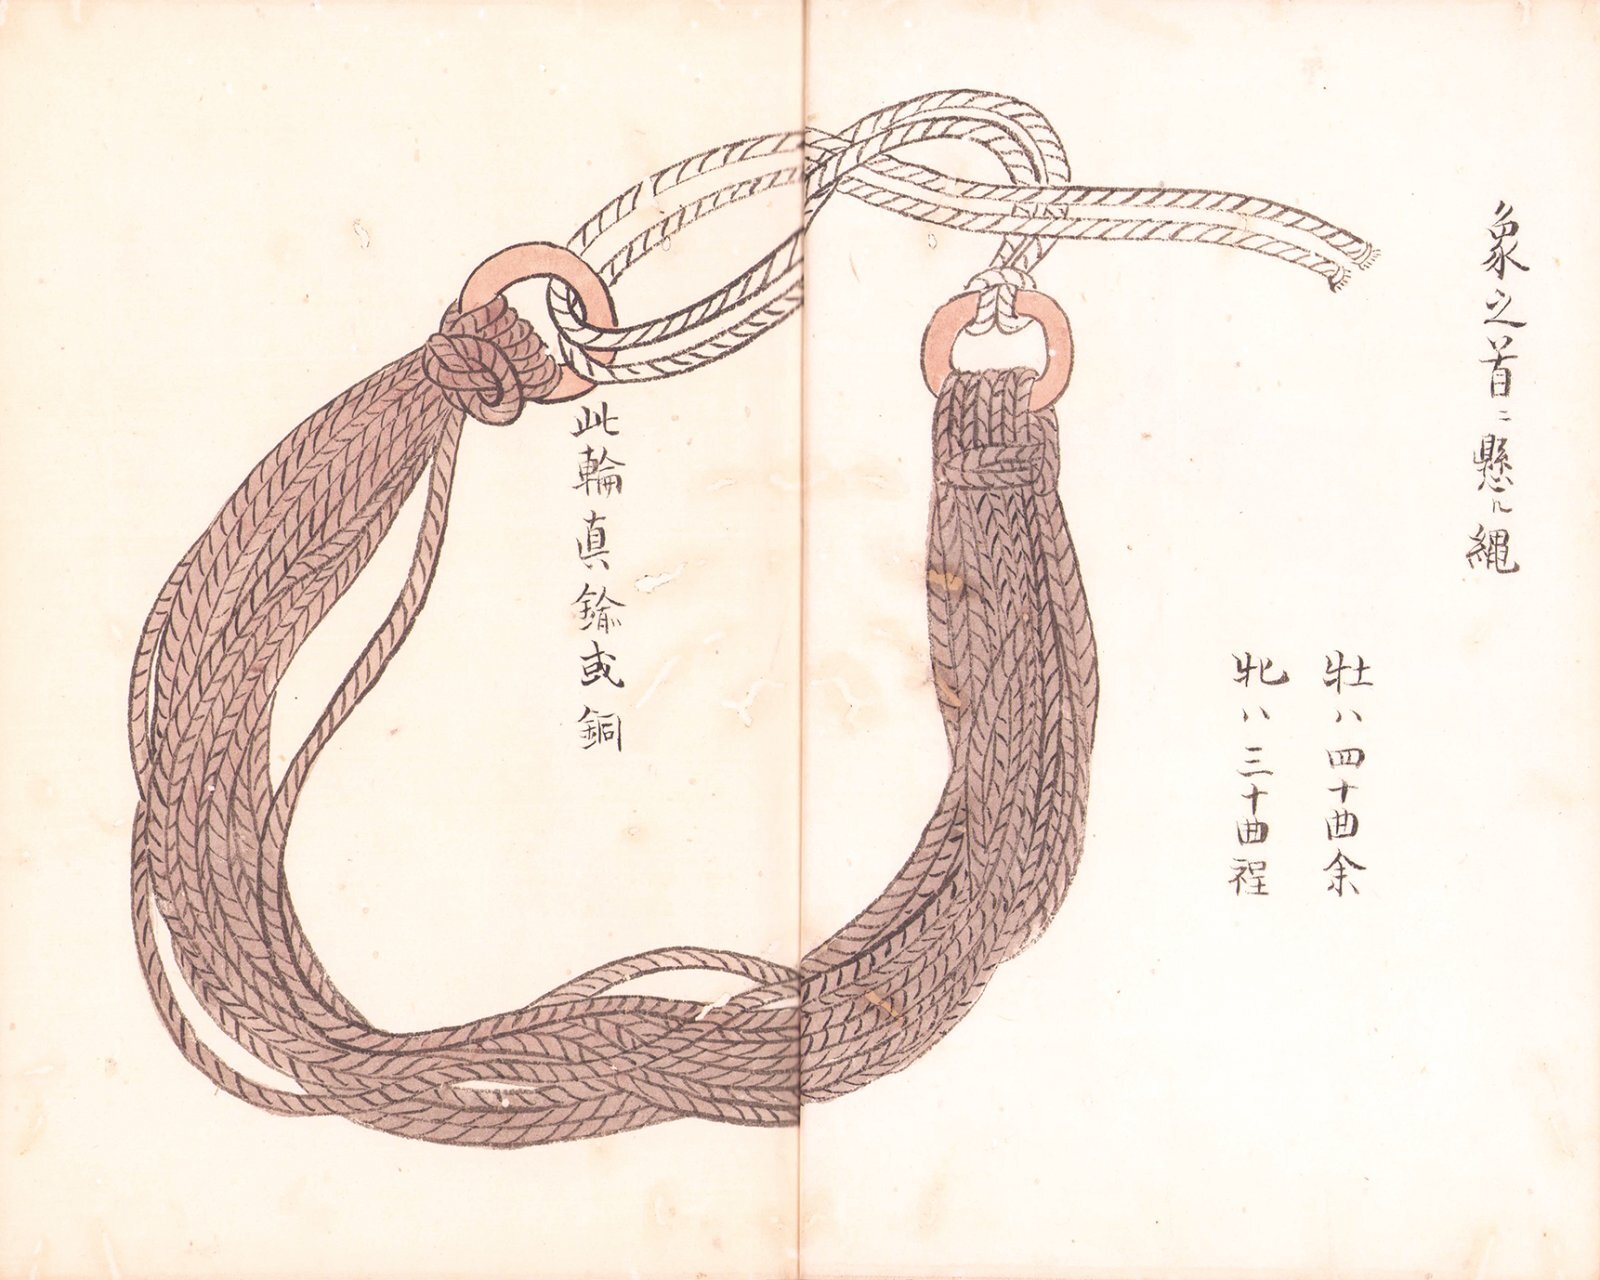 象之首ニ懸ル縄
牡ハ四十曲余
牝ハ三十曲程
此輪真鍮或銅